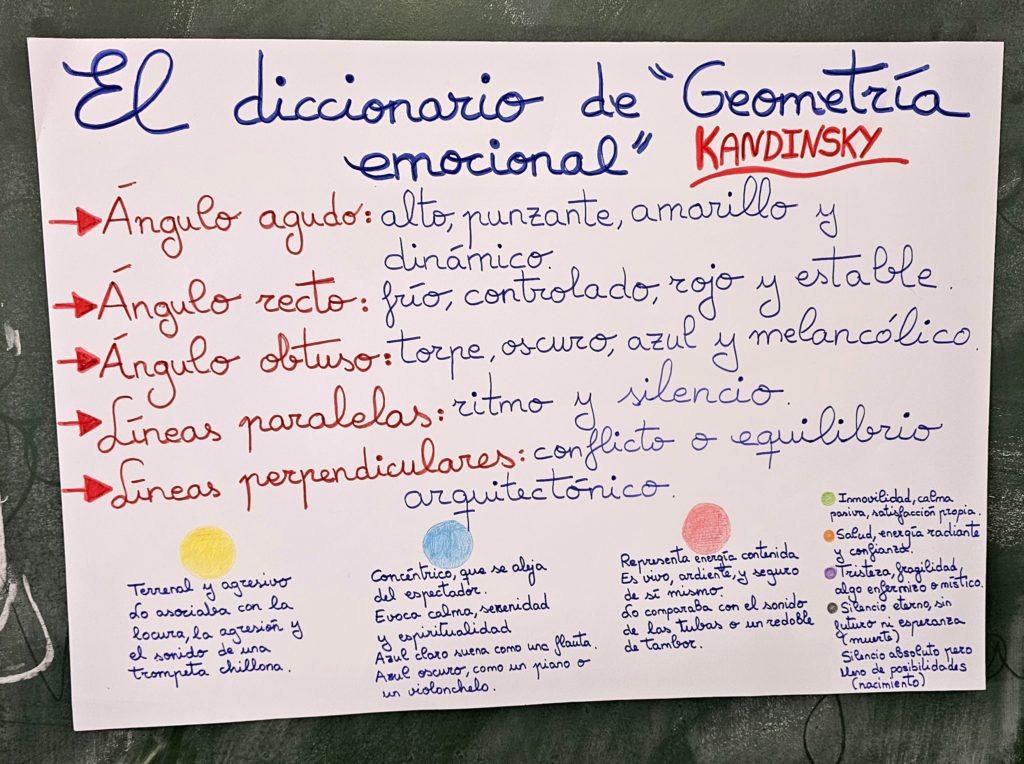 El diccionario de "Geometría
emocional" KANDINSKY
Ángulo agudo: alto, punzante, amarillo y
dinámico.
Ángulo recto: frío, controlado, rojo y estable.
Ángulo obtuso: torpe, oscuro, azul y melancólico.
Líneas paralelas: ritmo y silencio.
Líneas perpendiculares: conflicto o equilibrio
arquitectónico.
Terrenal y agresivo
Lo asociaba con la
locura, la agresión y
el sonido de una
trompeta chillona.
Concéntrico, que se aleja
del espectador.
Evoca calma, serenidad
y espiritualidad
Azul claro suena como una flauta.
Azul oscuro, como un piano o
un violonchelo.
Representa energía contenida
Es vivo, ardiente, y seguro
de sí mismo.
Lo comparaba con el sonido
de las tubas o un redoble
de tambor.
Inmovilidad, calma
pasiva, satisfacción propia.
Salud, energía radiante
y confianza.
Tristeza, fragilidad,
algo enfermizo o místico.
Silencio eterno, sin
futuro ni esperanza
(muerte)
Silencio absoluto pero
lleno de posibilidades
(nacimiento)